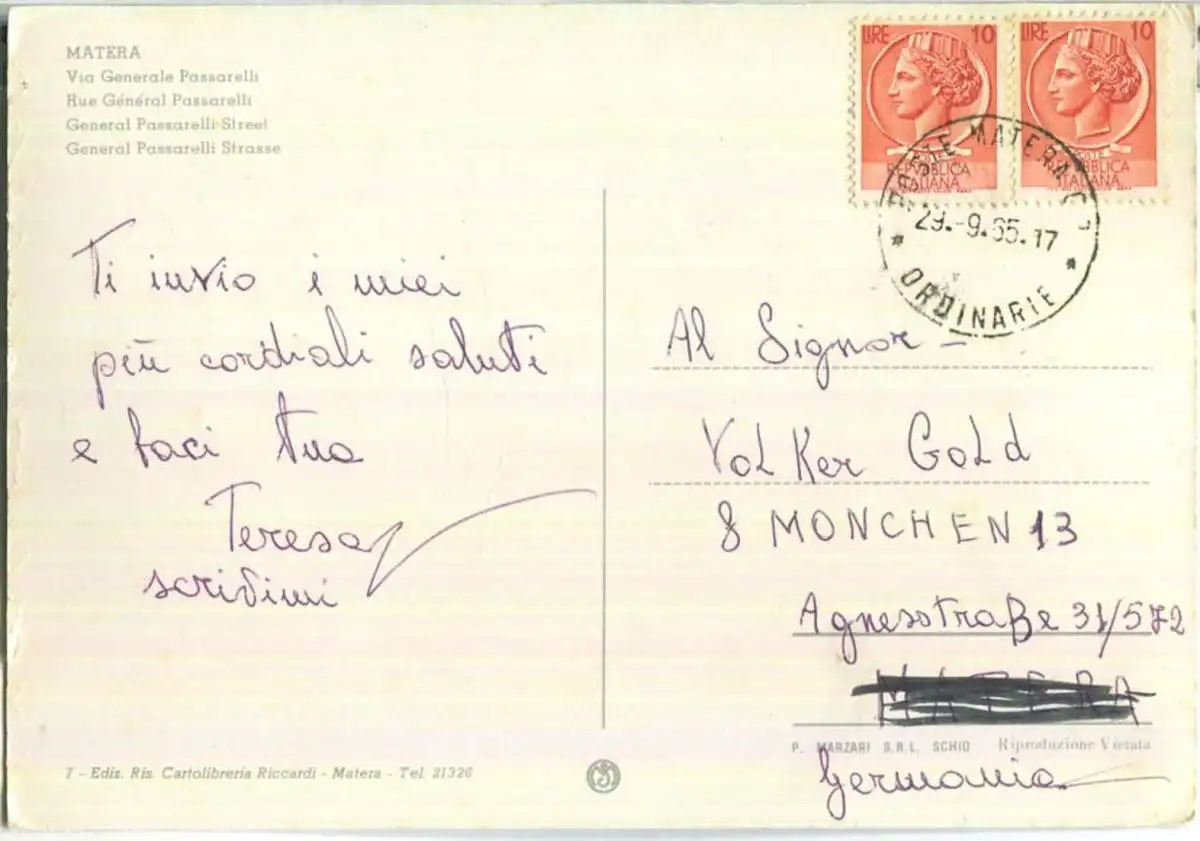 MATERA
Via Generale Passarelli
Rue Général Passarelli
General Passarelli Street
General Passarelli Strasse
LIRE 10
POSTE
REPUBBLICA
ITALIANA
LIRE 10
REPUBBLICA
ITALIANA
POSTE MATERA
29.-9.65.17
* ORDINARIE *
Ti invio i miei
più cordiali saluti
e baci tua
Teresa
scrivimi
Al Signor -
Volker Gold
8 MONCHEN 13
Agnesstraße 31/572
MATERA
Germania
P. MARZARI S.R.L. SCHIO Riproduzione Vietata
7 - Ediz. Ris. Cartolibreria Riccardi - Matera - Tel. 21326